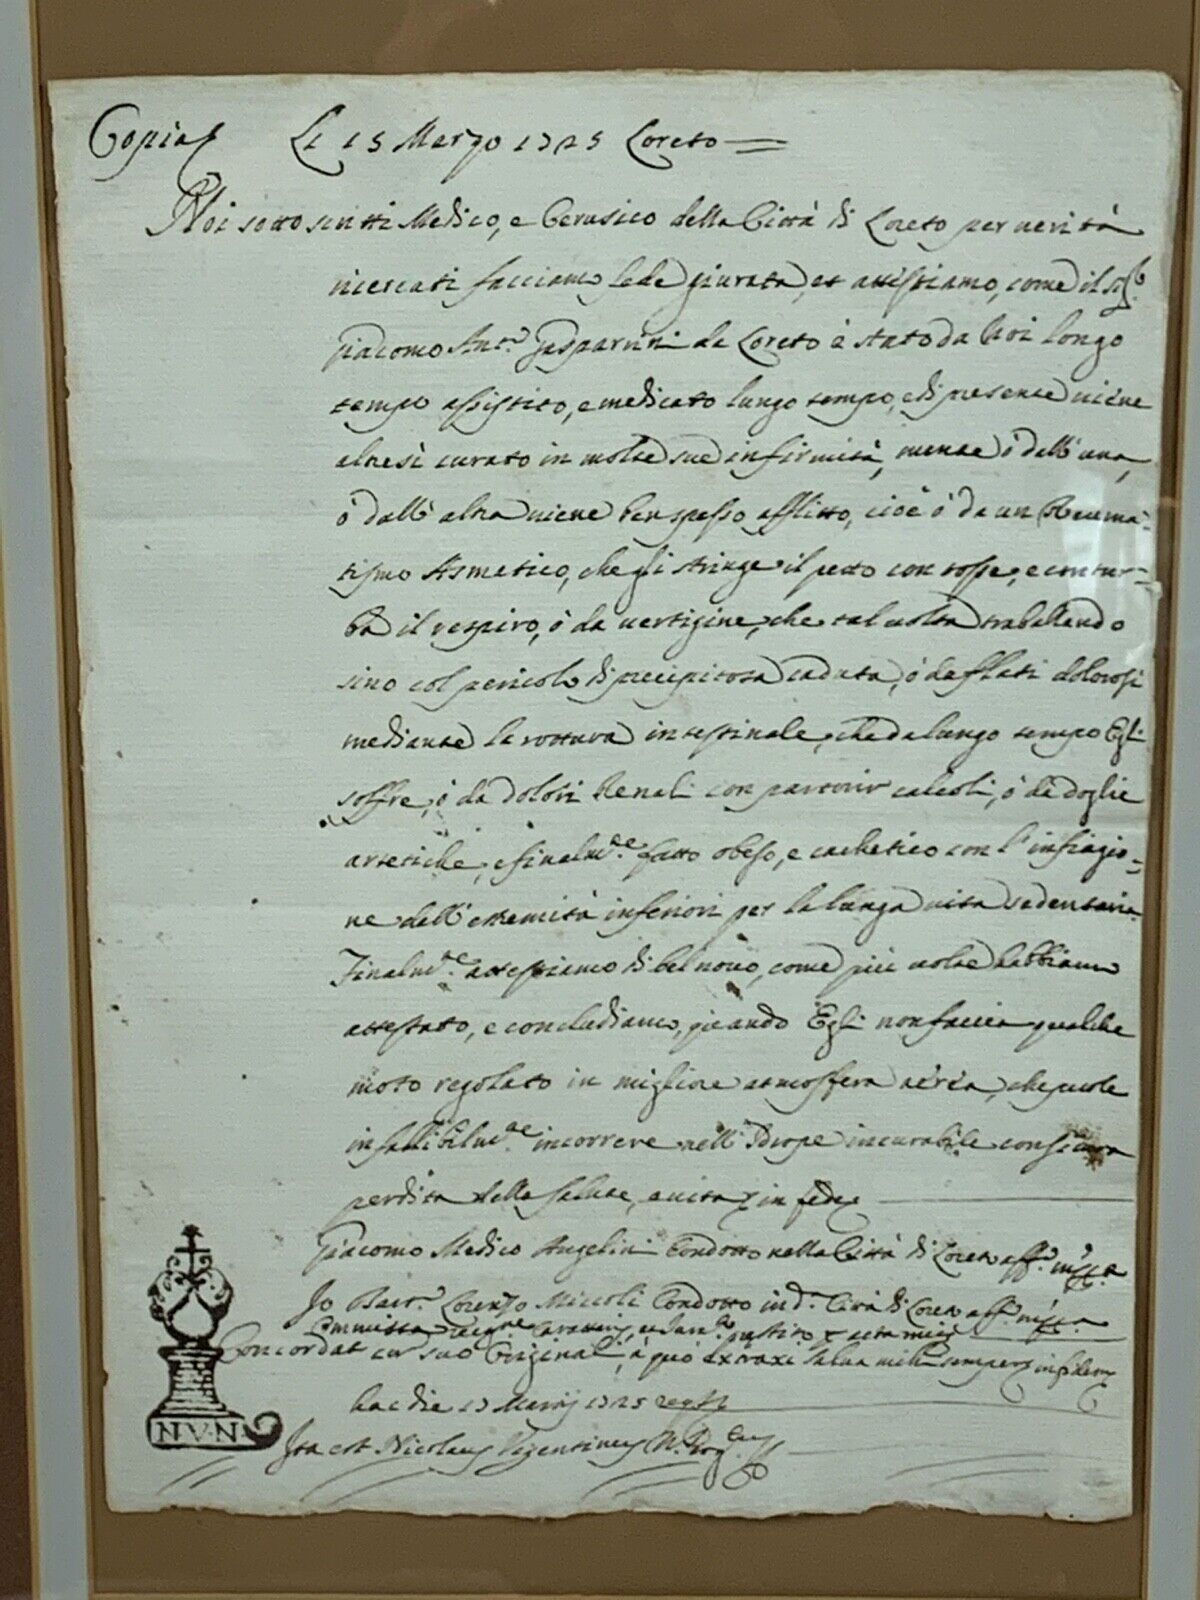 Copia Li 15 Marzo 1725 Loreto
Noi sottoscritti Medico, e Cerusico della Città di Loreto per verità
ricercati facciamo fede giurata, et attestiamo, come il Sig.e
Giacomo Ant.o Gasparini da Loreto è stato da Noi longo
tempo assistito, e medicato lungo tempo, e di presente viene
altresì curato in molte sue infirmità, mentre ò dall' una,
ò dall' altra viene ben spesso afflitto, cioè ò da un Reuma-
tismo Asmatico, che gli stringe il petto con tosse, e contur-
ba il respiro, ò da vertigine, che tal volta traballando
sino col pericolo di precipitosa caduta, ò da flati dolorosi
mediante la rottura intestinale, che da lungo tempo Egli
soffre, ò da dolori Renali con partorir calcoli, ò da doglie
artetiche, e finalm.te fatto obeso, e cachetico con l'infiagio-
ne dell' estremità inferiori per la lunga vita sedentaria.
Finalm.te attestiamo di bel nouo, come più volte habbiamo
attestato, e concludiamo, quando Egli non faccia qualche
moto regolato in migliore atmosfera aerea, che puole
infallibilm.te incorrere nell' Idrope incurabile con sicura
perdita della salute, e vita in fede
Giacomo Medico Angelini Condotto nella Città di Loreto aff.o
Io Bart.o Lorenzo Miccoli Condotto in d.a Città di Loreto aff.o
Concordat cum suo Originali, à quo extraxi salva mihi semper in fidem
hac die 17 Martij 1725
Ita est Nicolaus
N.V.N.